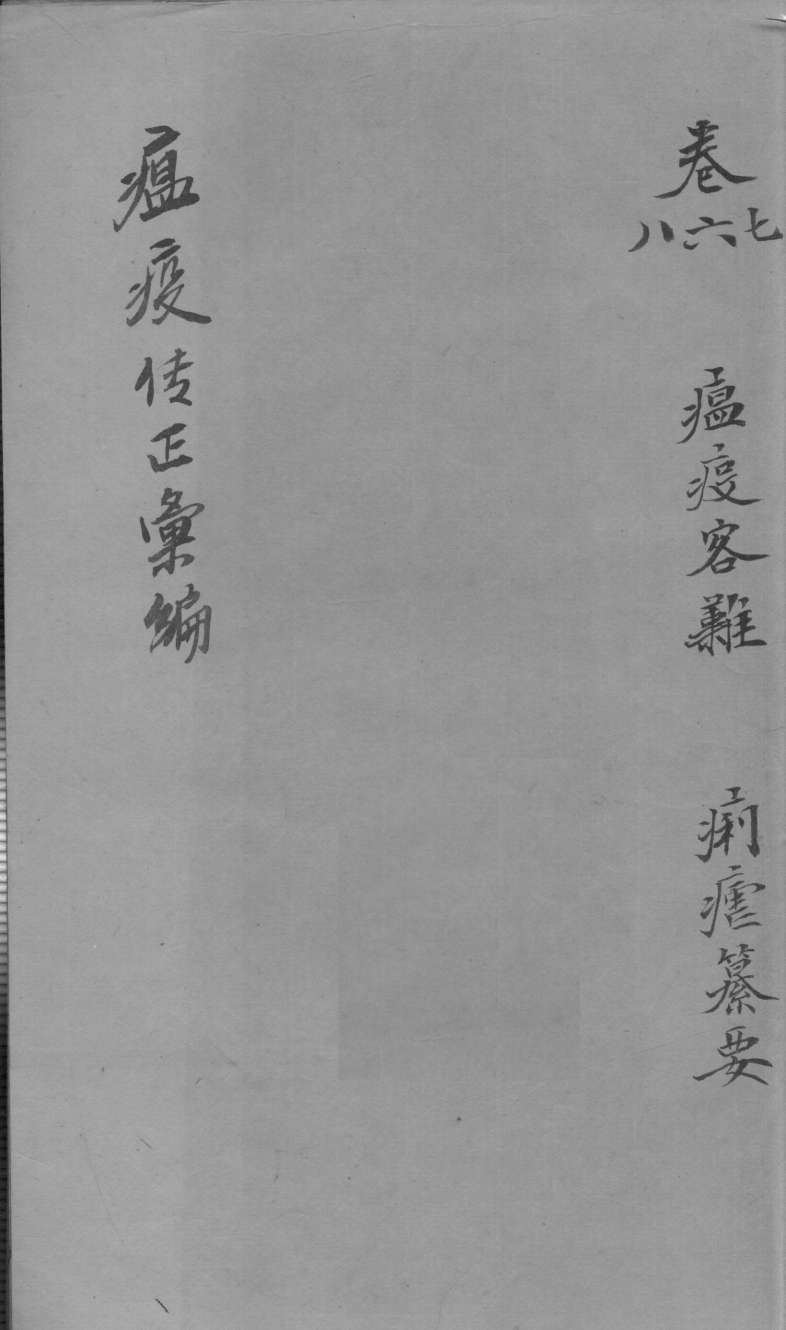 卷
七六八
瘟疫客難
痢瘧纂要
瘟疫传正彙編